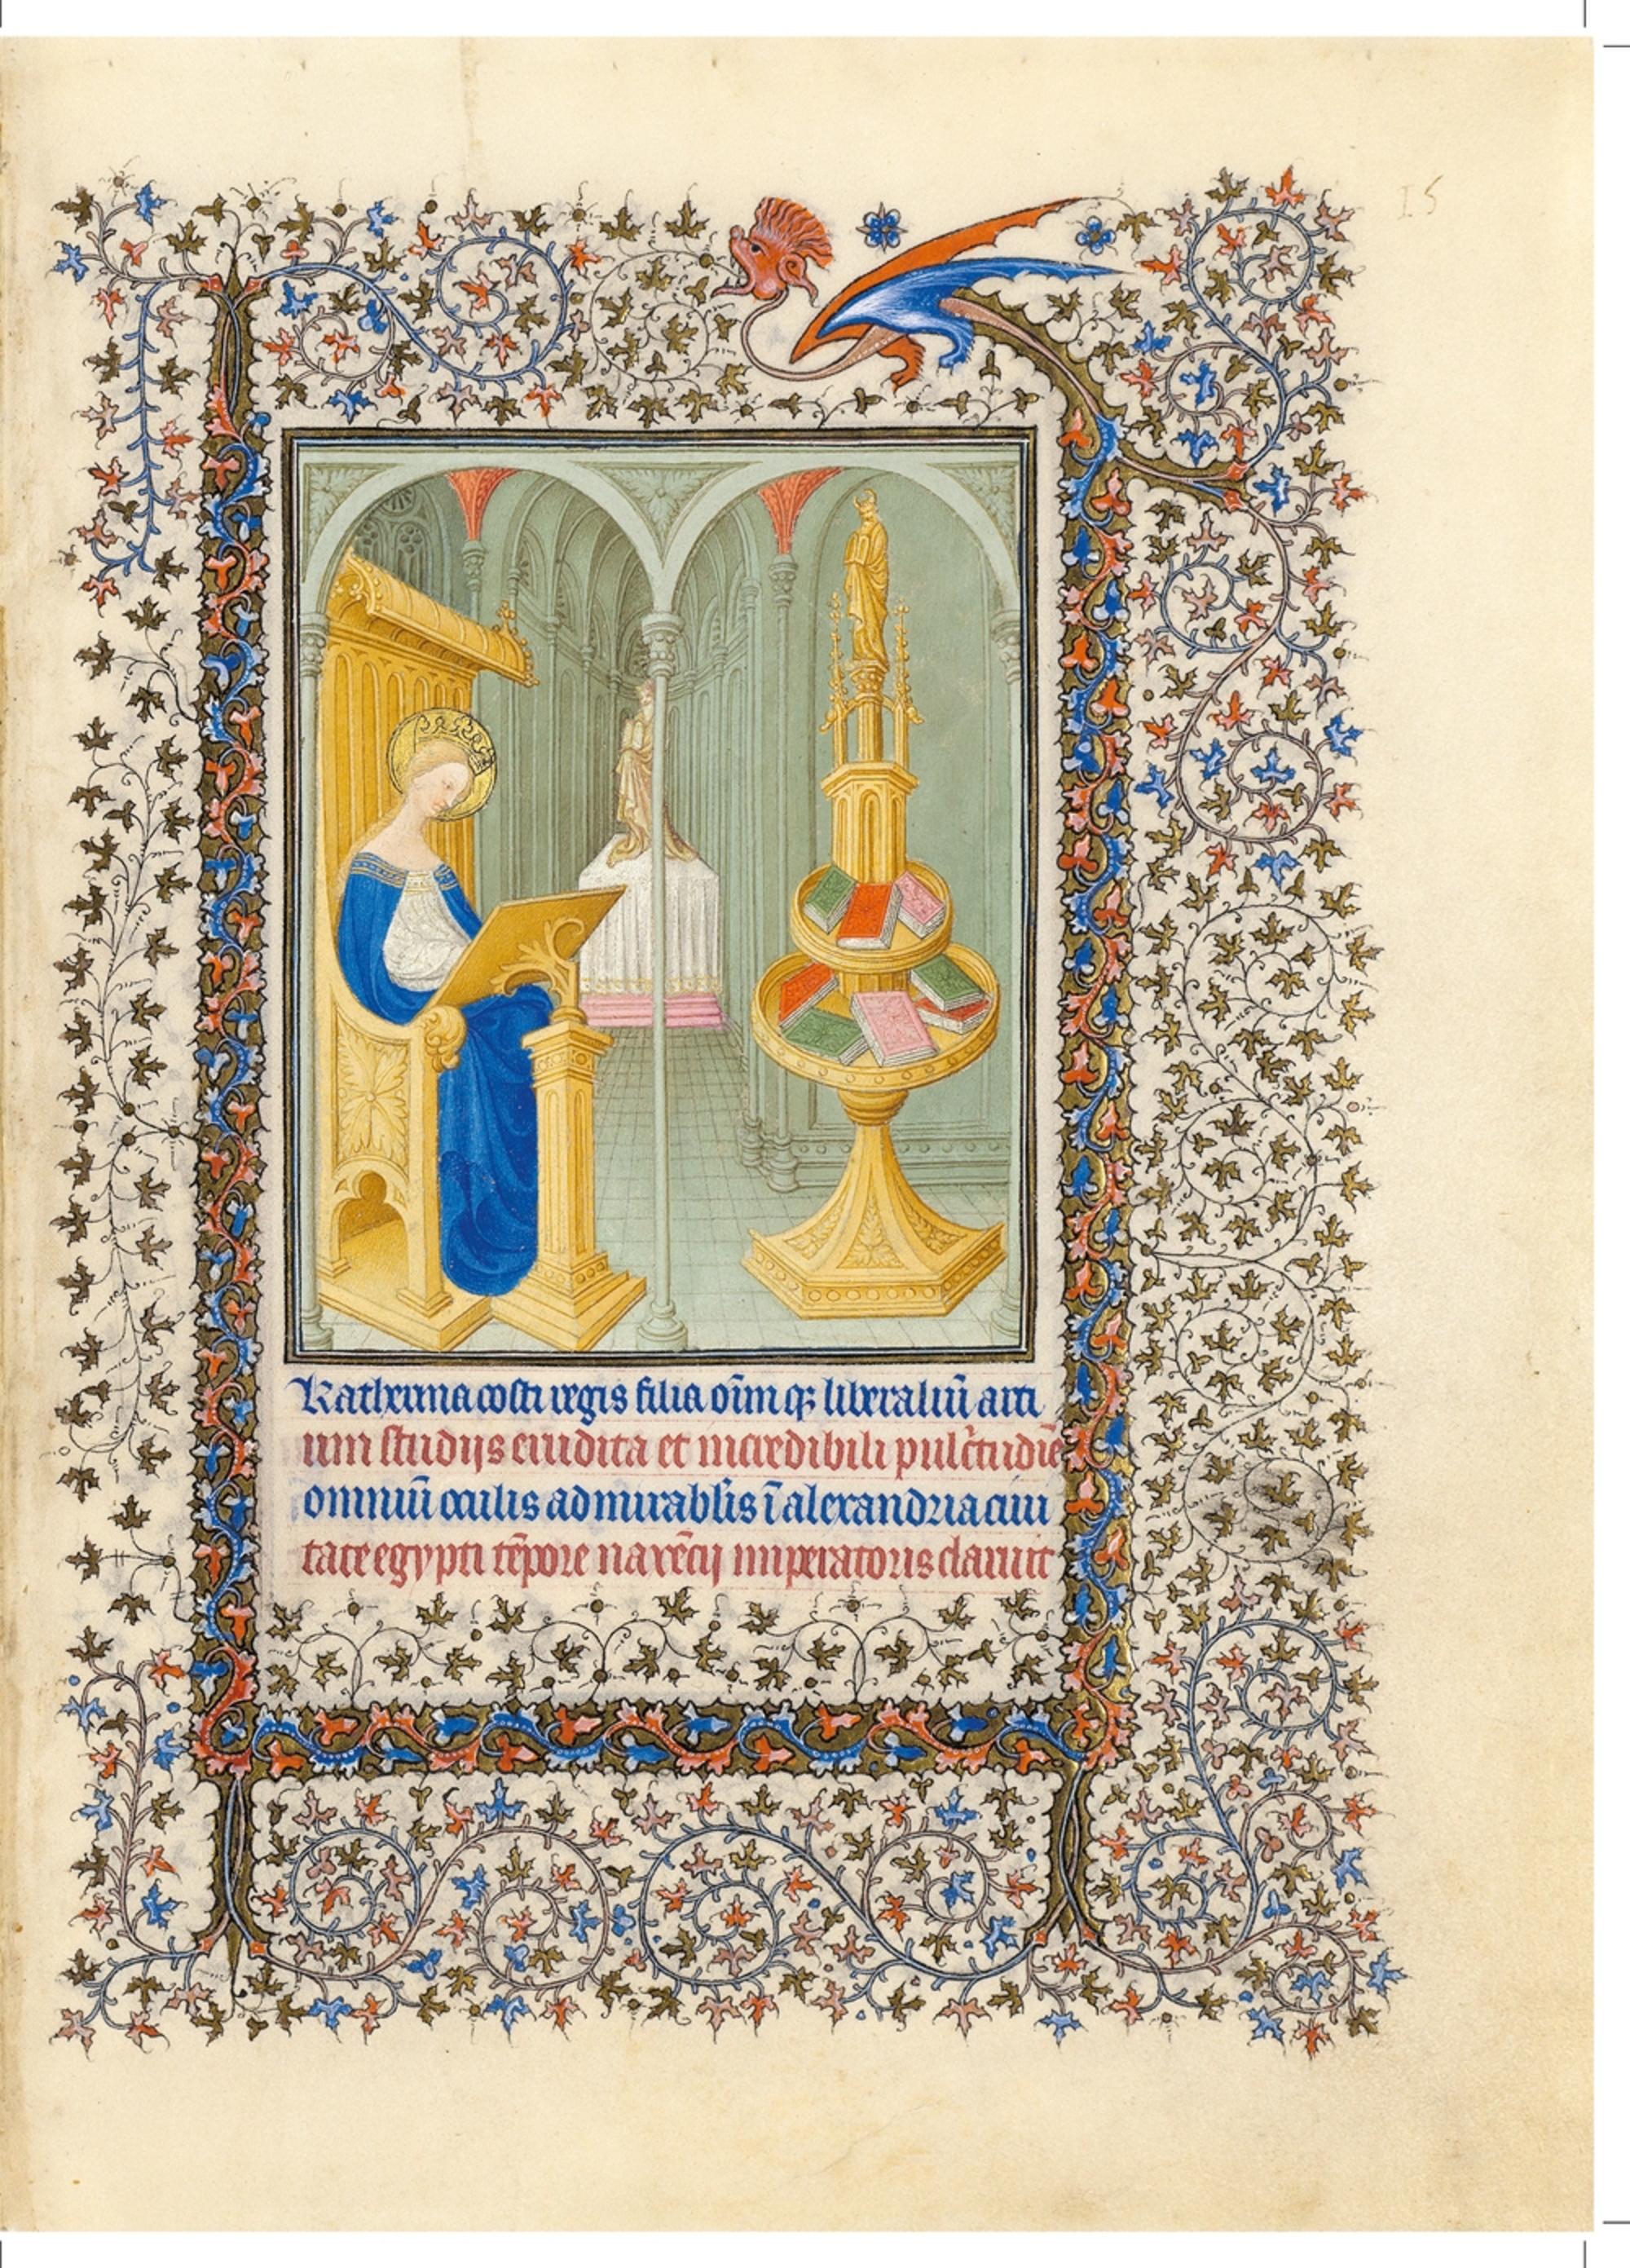 15
Katherina costi regis filia oīmq; liberaliū arti
um studijs erudita et incredibili pulc̄tudīe
omniū oculis admirabl̄is ī alexandria ciui
tate egypti tēpore maxēcij imperatoris claruit